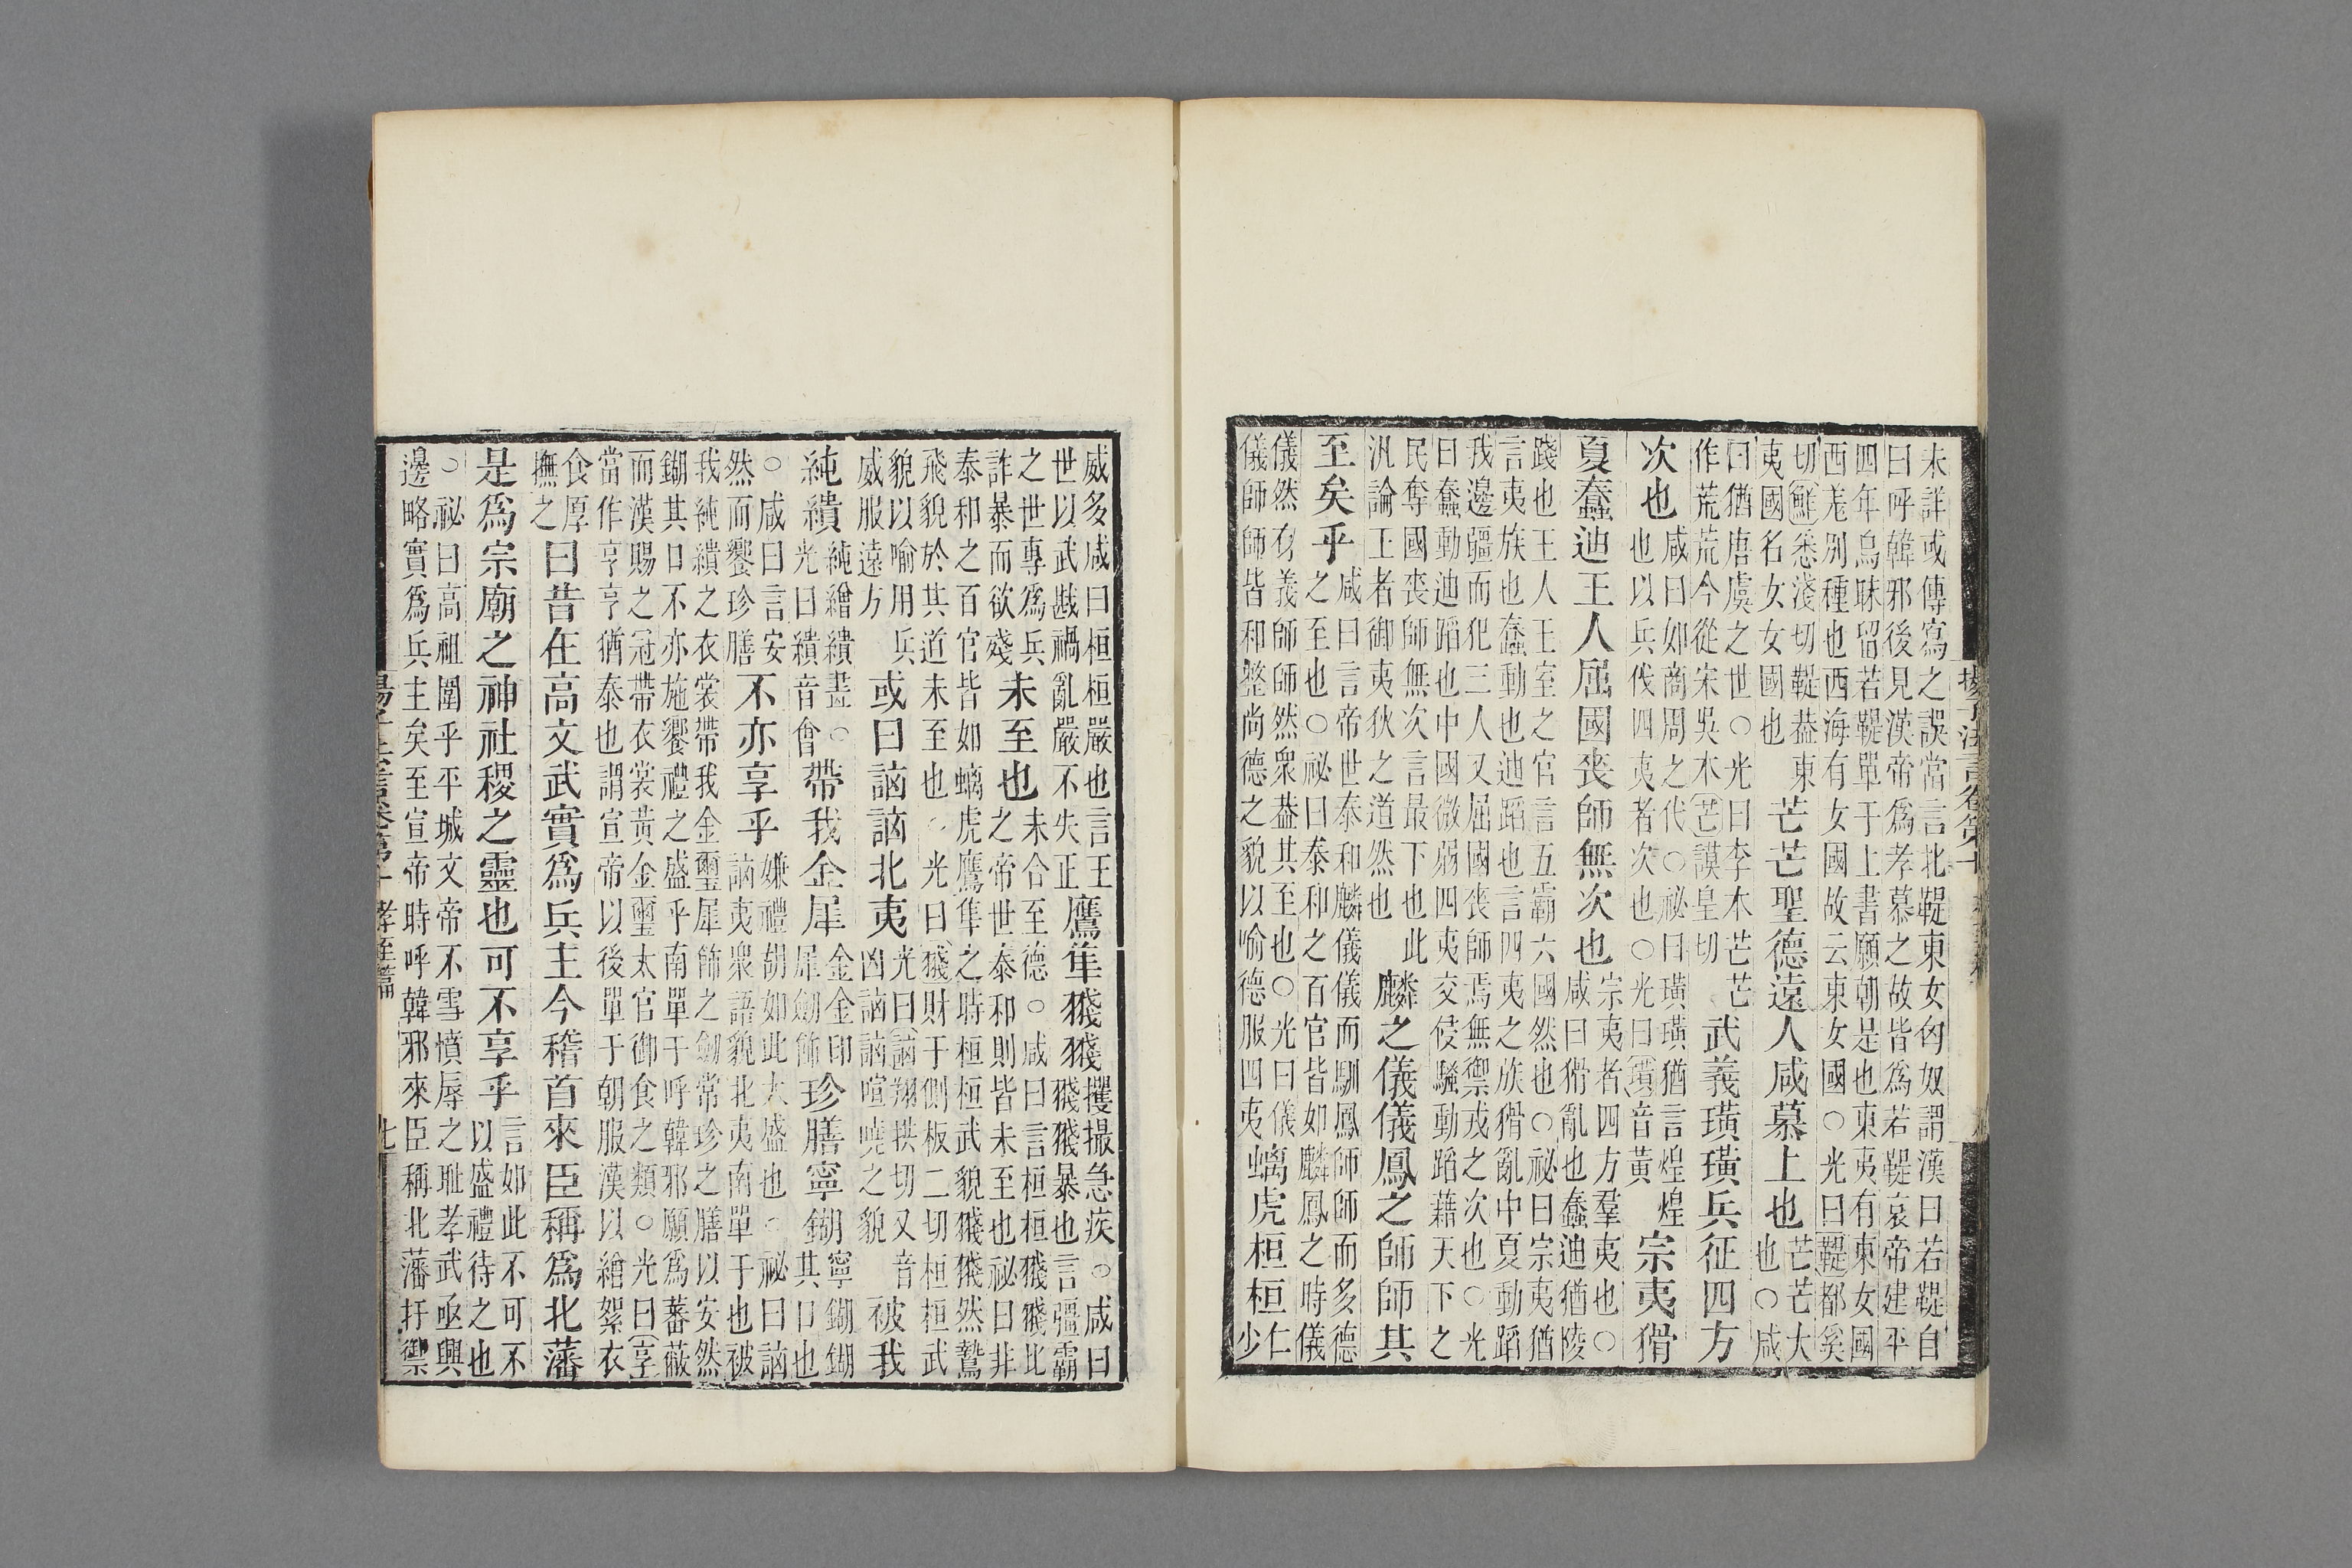 未詳或傳寫之誤當言北鞮東女匈奴謂漢曰若鞮自
曰呼韓邪後見漢帝爲孝慕之故皆爲若鞮哀帝建平
四年烏眛留若鞮單于上書願朝是也東夷有東女國
西羌別種也西海有女國故云東女國○光曰鞮都奚
切鮮悉淺切鞮葢東夷國名女女國也芒芒聖德遠人咸慕上也芒芒大也○咸
曰猶唐虞之世○光曰李本芒芒作荒荒今從宋吳本芒謨皇切武義璜璜兵征四方
次也咸曰如商周之代○祕曰璜璜猶言煌煌也以兵伐四夷者次也○光曰璜音黃宗夷猾
夏蠢迪王人屈國喪師無次也宗夷者四方羣夷也○咸曰猾亂也蠢迪猶陵
踐也王人王室之官言五霸六國然也○祕曰宗夷猶
言夷族也蠢動也迪蹈也言四夷之族猾亂中夏動蹈
我邊疆而犯三人又屈國喪師焉無禦戎之次也○光
曰蠢動迪蹈也中國微弱四夷交侵騷動蹈藉天下之
民奪國喪師無次言最下也此汎論王者御夷狄之道然也麟之儀儀鳳之師師其
至矣乎咸曰言帝世泰和麟儀儀而馴鳳師師而多德之至也○祕曰泰和之百官皆如麟鳳之時儀
儀然有義師師然衆葢其至也○光曰儀儀師師皆和整尚德之貌以喻德服四夷螭虎桓桓仁少
揚子法言卷第十
威多咸曰桓桓嚴也言王世以武戡禍亂嚴不失正鷹隼攫撮急疾○咸曰暴也言彊霸
之世專爲兵詐暴而欲殘未至也未合至德○咸曰言桓桓比之帝世泰和則皆未至也祕曰非
泰和之百官皆如螭虎鷹隼之時桓桓武貌然鷙
飛貌於其道未至也○光曰財干側板二切桓桓武
貌以喻用兵威服遠方或曰訩訩北夷光曰訩翔拱切又音凶訩訩喧嘵之貌被我
純繢純繒繢畫○光曰繢音會帶我金犀金金印犀劒飾珍膳寧餬寧餬餬其口也
○咸曰言安然而饗珍膳不亦享乎嫌禮胡如此大盛也○祕曰訩訩夷衆語貌北夷南單于也被
我純繢之衣裳帶我金璽犀飾之劒常珍之膳以安然
餬其口不亦施饗禮之盛乎南單于呼韓邪願爲蕃蔽
而漢賜之冠帶衣裳黃金璽太官御食之類○光曰享
當作亨亨猶泰也謂宣帝以後單于朝服漢以繒絮衣
食厚撫之曰昔在高文武實爲兵主今稽首來臣稱爲北藩
是爲宗廟之神社稷之靈也可不享乎言如此不可不以盛禮待之也
○祕曰高祖圍乎平城文帝不雪憤辱之耻孝武亟興
邊略實爲兵主矣至宣帝時呼韓邪來臣稱北藩扞禦